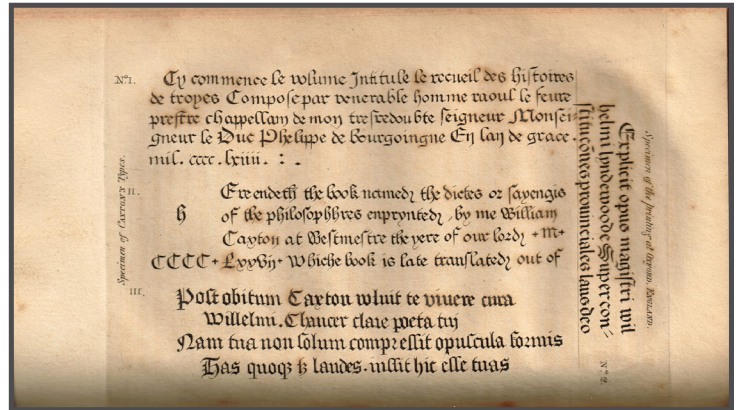 No. 1.
Cy commence le volume Intitule le recueil des histoires
de troyes Compose par venerable homme raoul le feure
prestre chappellain de mon tresredoubte seigneur Monsei-
gneur le Duc Phelippe de Bourgoingne En lan de grace.
mil. cccc. lxiiii. : .
II.
Ere endeth the book named the dictes or sayengis
h of the philosophhres enprynted, by me William
Caxton at Westmestre the yere of our lord +m+
CCCC+ LxxVij+ Whiche book is late translated out of
III.
Post obitum Caxton voluit te viuere cura
Willelmi. Chaucer clare poeta tuj
Nam tua non solum compressit opuscula formis
Has quoqz sz laudes. iussit hic esse tuas
Specimen of CAXTON'S Types.
Explicit opus magistri wil
helmi lyndewoode Super con-
stitucões prouinciales laus deo
Specimen of the printing at OXFORD, ENGLAND.
No. 2.